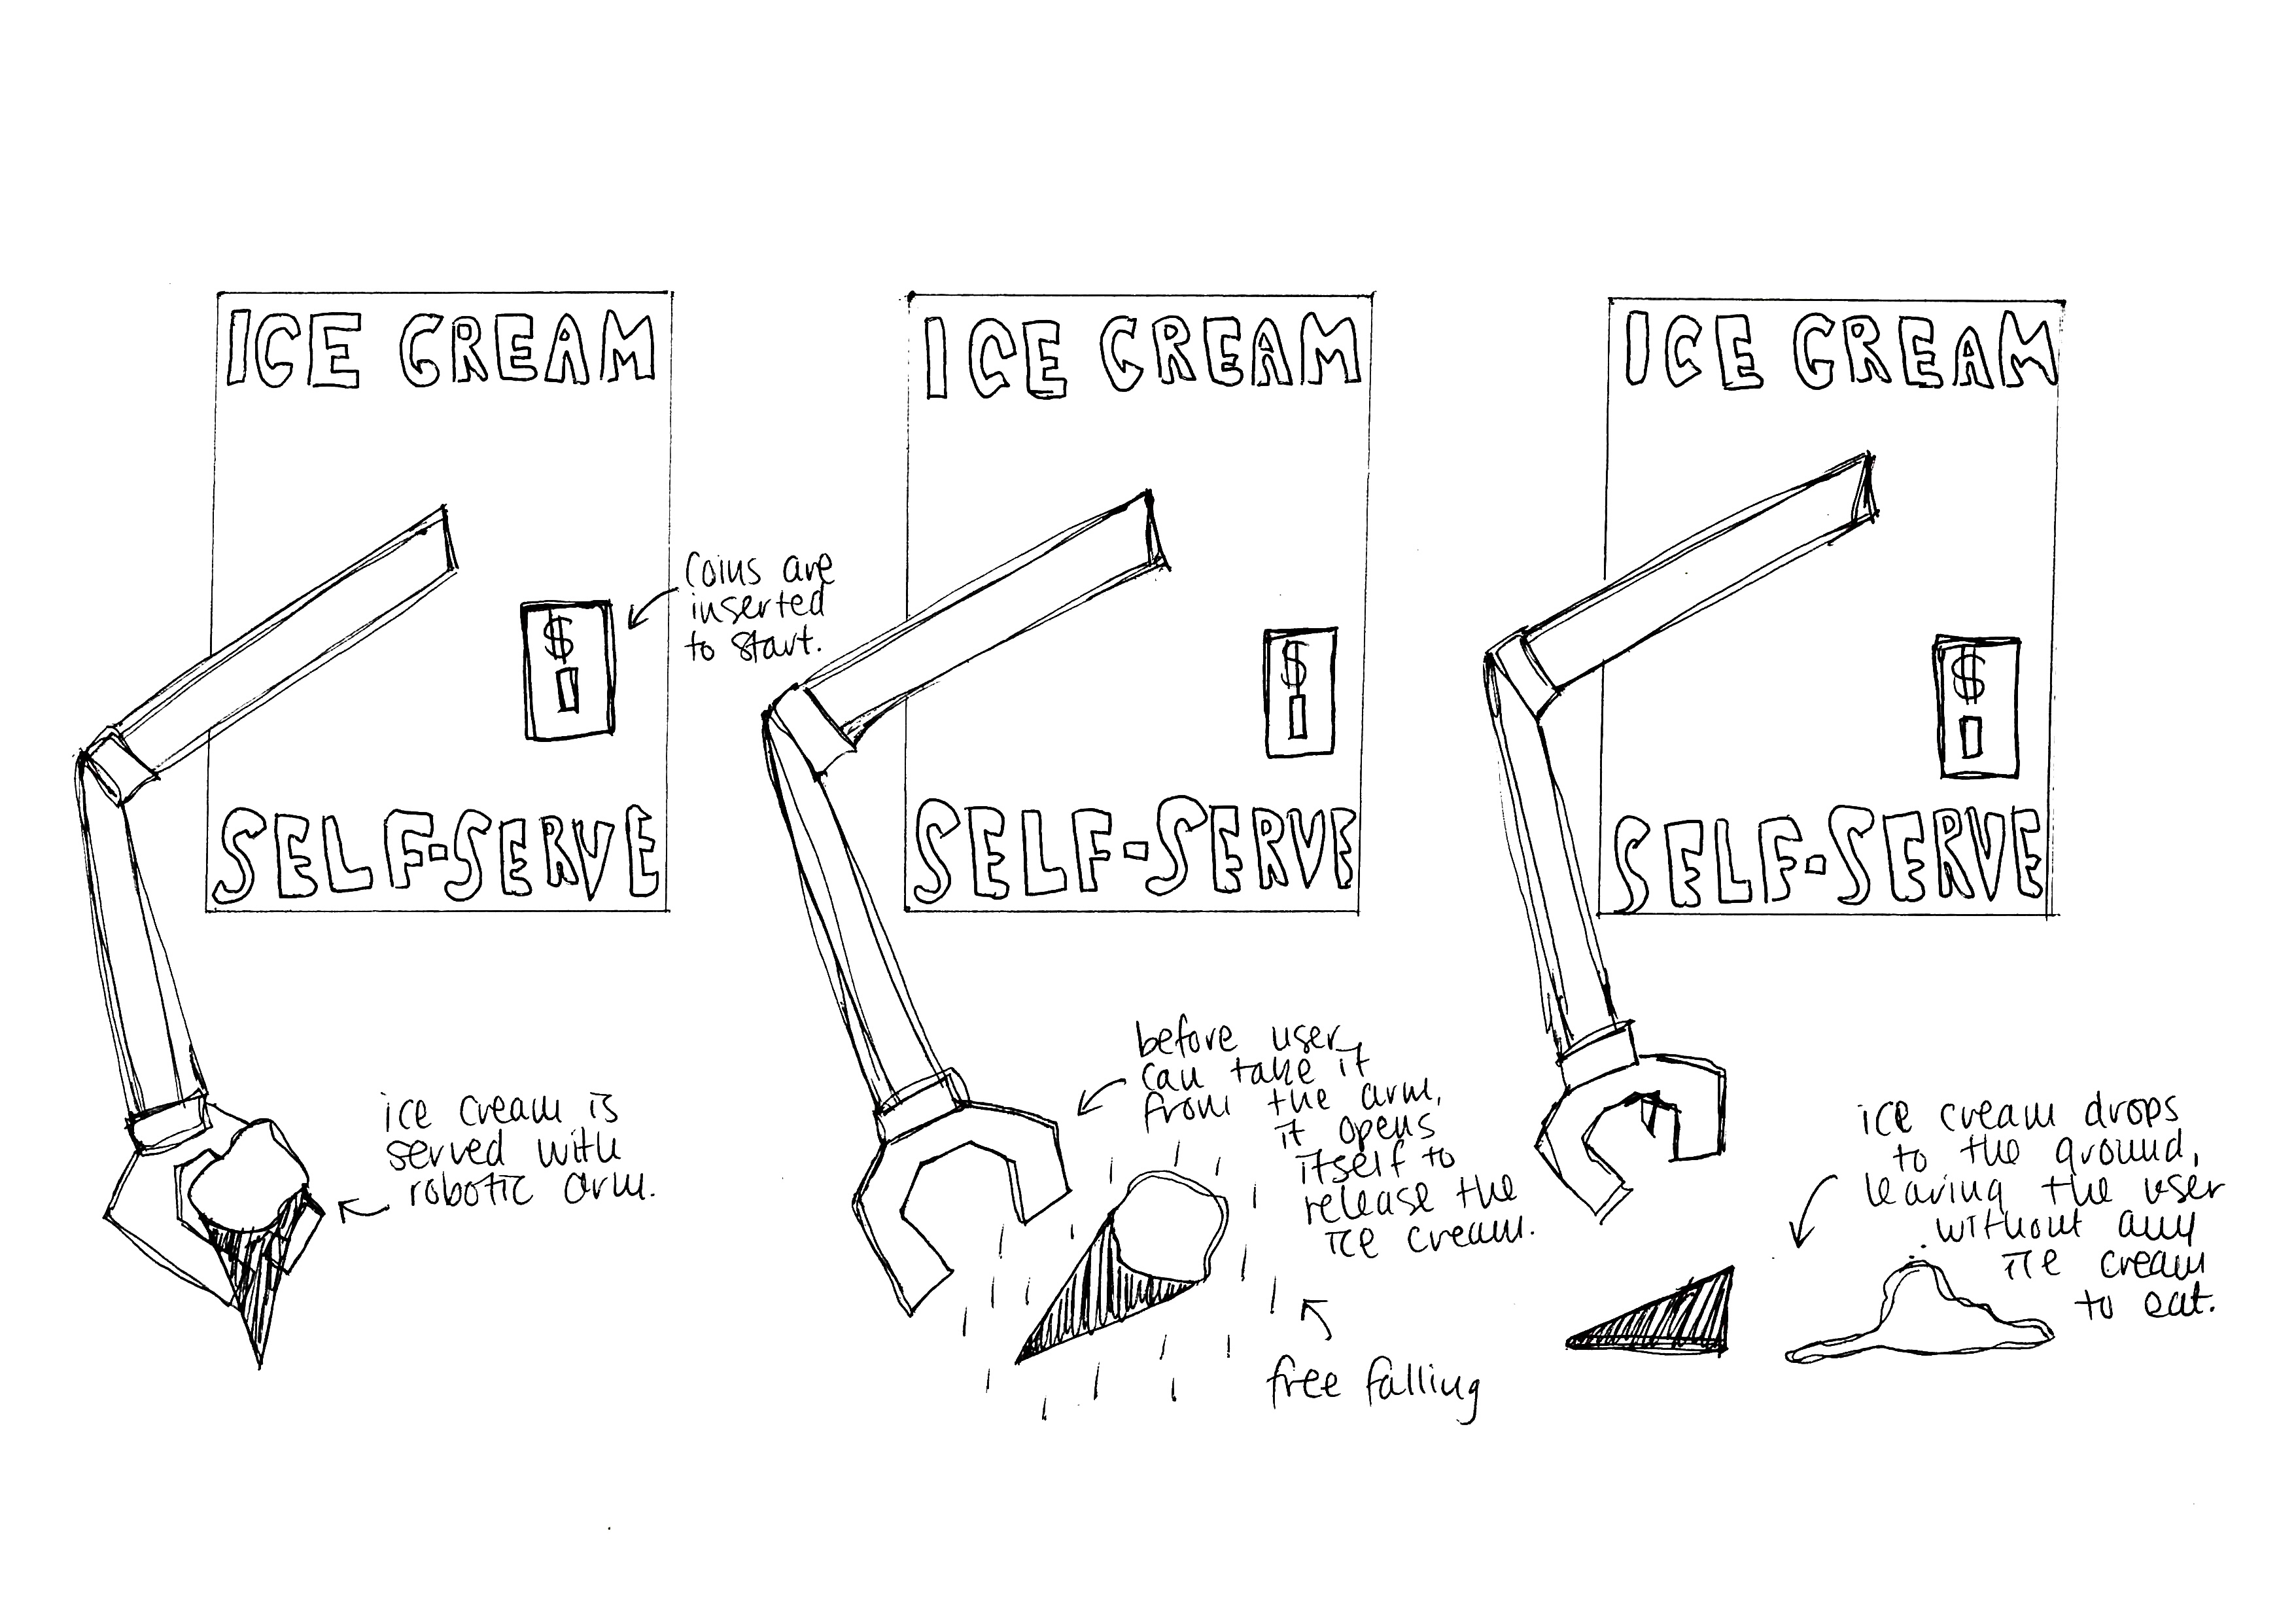 ICE CREAM
$
coins are
inserted
to start.
SELF-SERVE
ice cream is
served with
robotic arm.
ICE CREAM
$
SELF-SERVE
before user
can take it
from the arm,
it opens
itself to
release the
ice cream.
free falling
ICE CREAM
$
SELF-SERVE
ice cream drops
to the ground,
leaving the user
without any
ice cream
to eat.